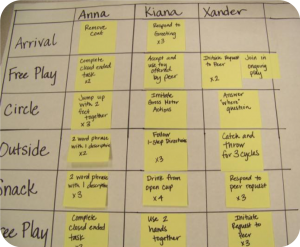 Anna Kiana Xander
Arrival
Remove
Coat
Respond to
Greeting
x3
Free Play
Complete
closed ended
task
x2
Accept and
use toy
offered
by peer
Initiate Request
to Peer
x2
Join in
ongoing
play
Circle
Jump up
with 2
feet
together
x3
Imitate
Gross Motor
Actions
Answer
"when"
question
Outside
2 word phrase
with 1
x2
Follow
1-step Directions
x3
Catch and
throw
for 3 cycles
Snack
2 word phrase
with 1
x3
Drink from
open cup
x4
Respond to
peer request
x3
Free Play
Complete
closed ended
task
Use 2
hands
together
Initiate
Request to
Peer
x3